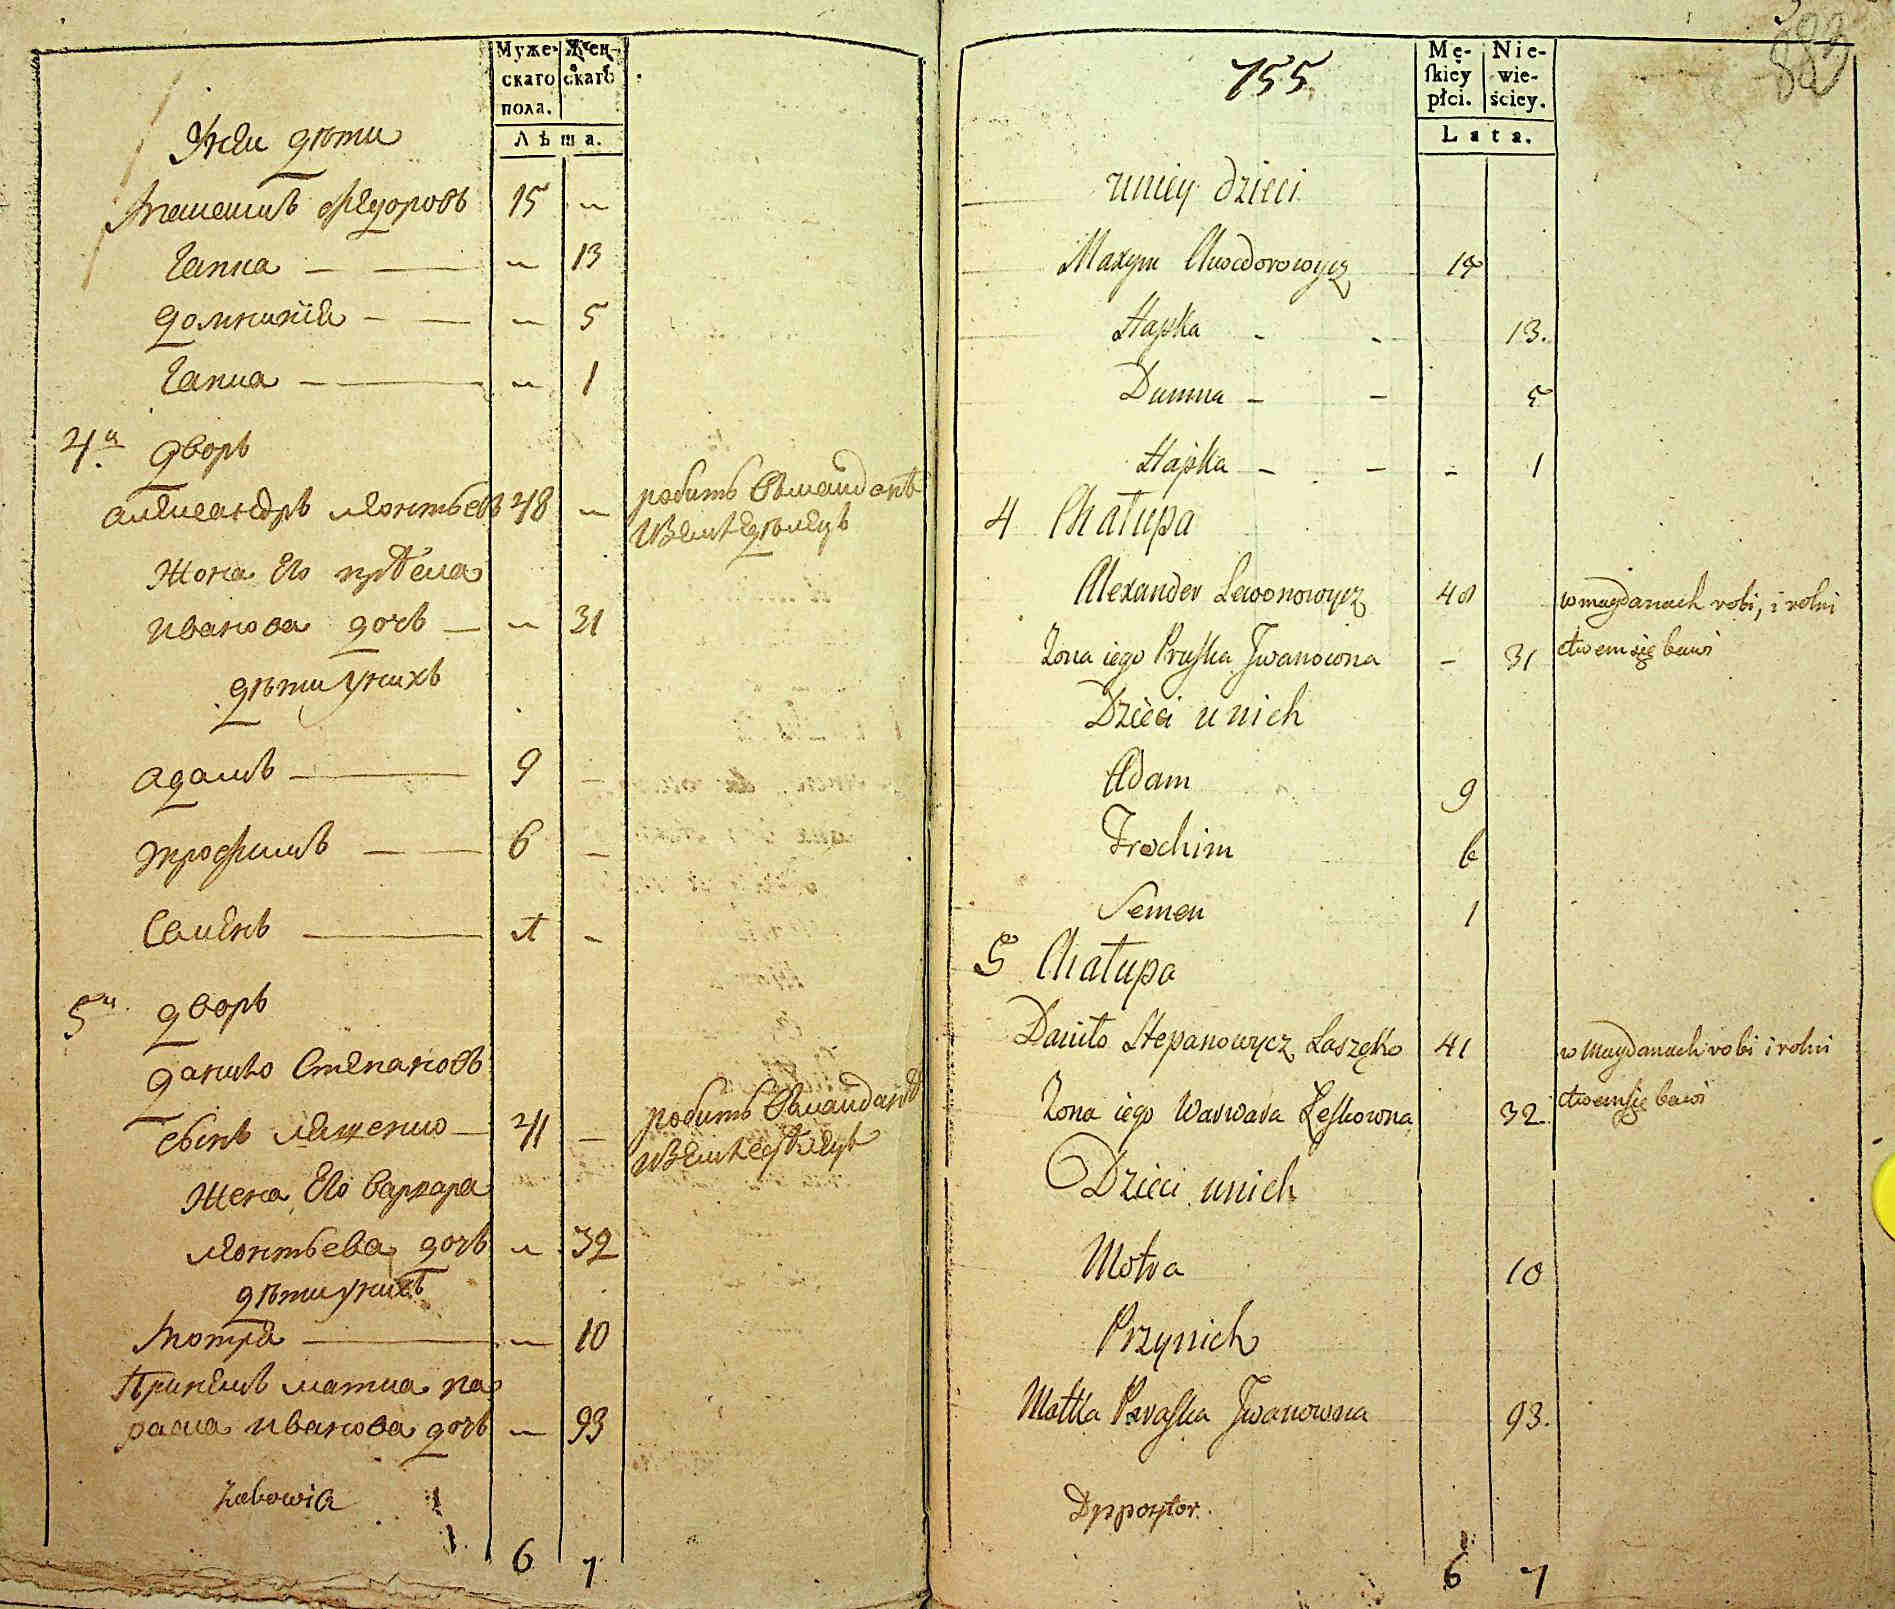 Муже- Жен-
скаго скаго
пола.
Лѣта.
Унеи дѣти
Максимъ Федоровъ 15 "
Гапка — — " 13
Домникія — — " 5
Гапка — — " 1
4й Дворъ
Александръ Леонтьевъ 48 "
робитъ Вмайданѣ
Иземледѣлецъ
Жона Его
Иванова дочь — " 31
Дѣти Унихъ
Адамъ — 9 –
Трофимъ — — 6 –
Семенъ — 1 –
5й Дворъ
Данило Степановъ
Сынъ Лященко — 41 –
робитъ Вмайданѣ
Иземледѣлецъ
Жена Его Варвара
Леонтьева дочь " 32
Дѣти Унихъ
Мотря — " 10
Принемъ матка Па
раска Иванова дочь " 93
6 7
755
Mę- Nie-
ſkiey wie-
płci. ściey.
Lata.
uniey dzieci
Maxym Chwedorowycz 15
Hapka - - 13.
Dumna - - 5
Hapka - - - 1
4 Chałupa
Alexander Lewonowycz 48
w maydanach robi, i rolni
ctwem się bawi
Zona iego Praſka Jwanowna - 31
Dzieci u nich
Adam 9
Trochim 6
Semen 1
5 Chałupa
Daniło Stepanowycz Laszęko 41
w Maydanach robi i rolni
ctwem się bawi
Zona iego Warwara Leſkowna 32
Dzieci unich
Motra 10
Przynich
Matka Paraſka Jwanowna 93.
6 7